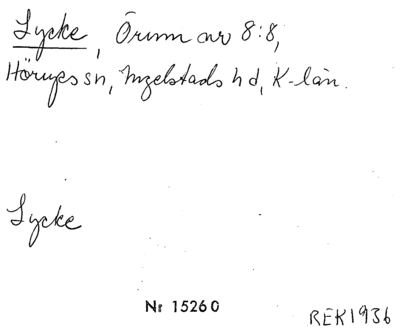 Lycke, Örum nr 8:8,
Hörups sn, Ingelstads hd, K-län.
Lycke
Nr 15260
REK1936